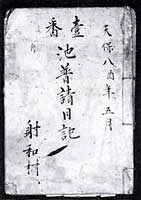 天保八酉年五月
壹番
池普請日記
射和村